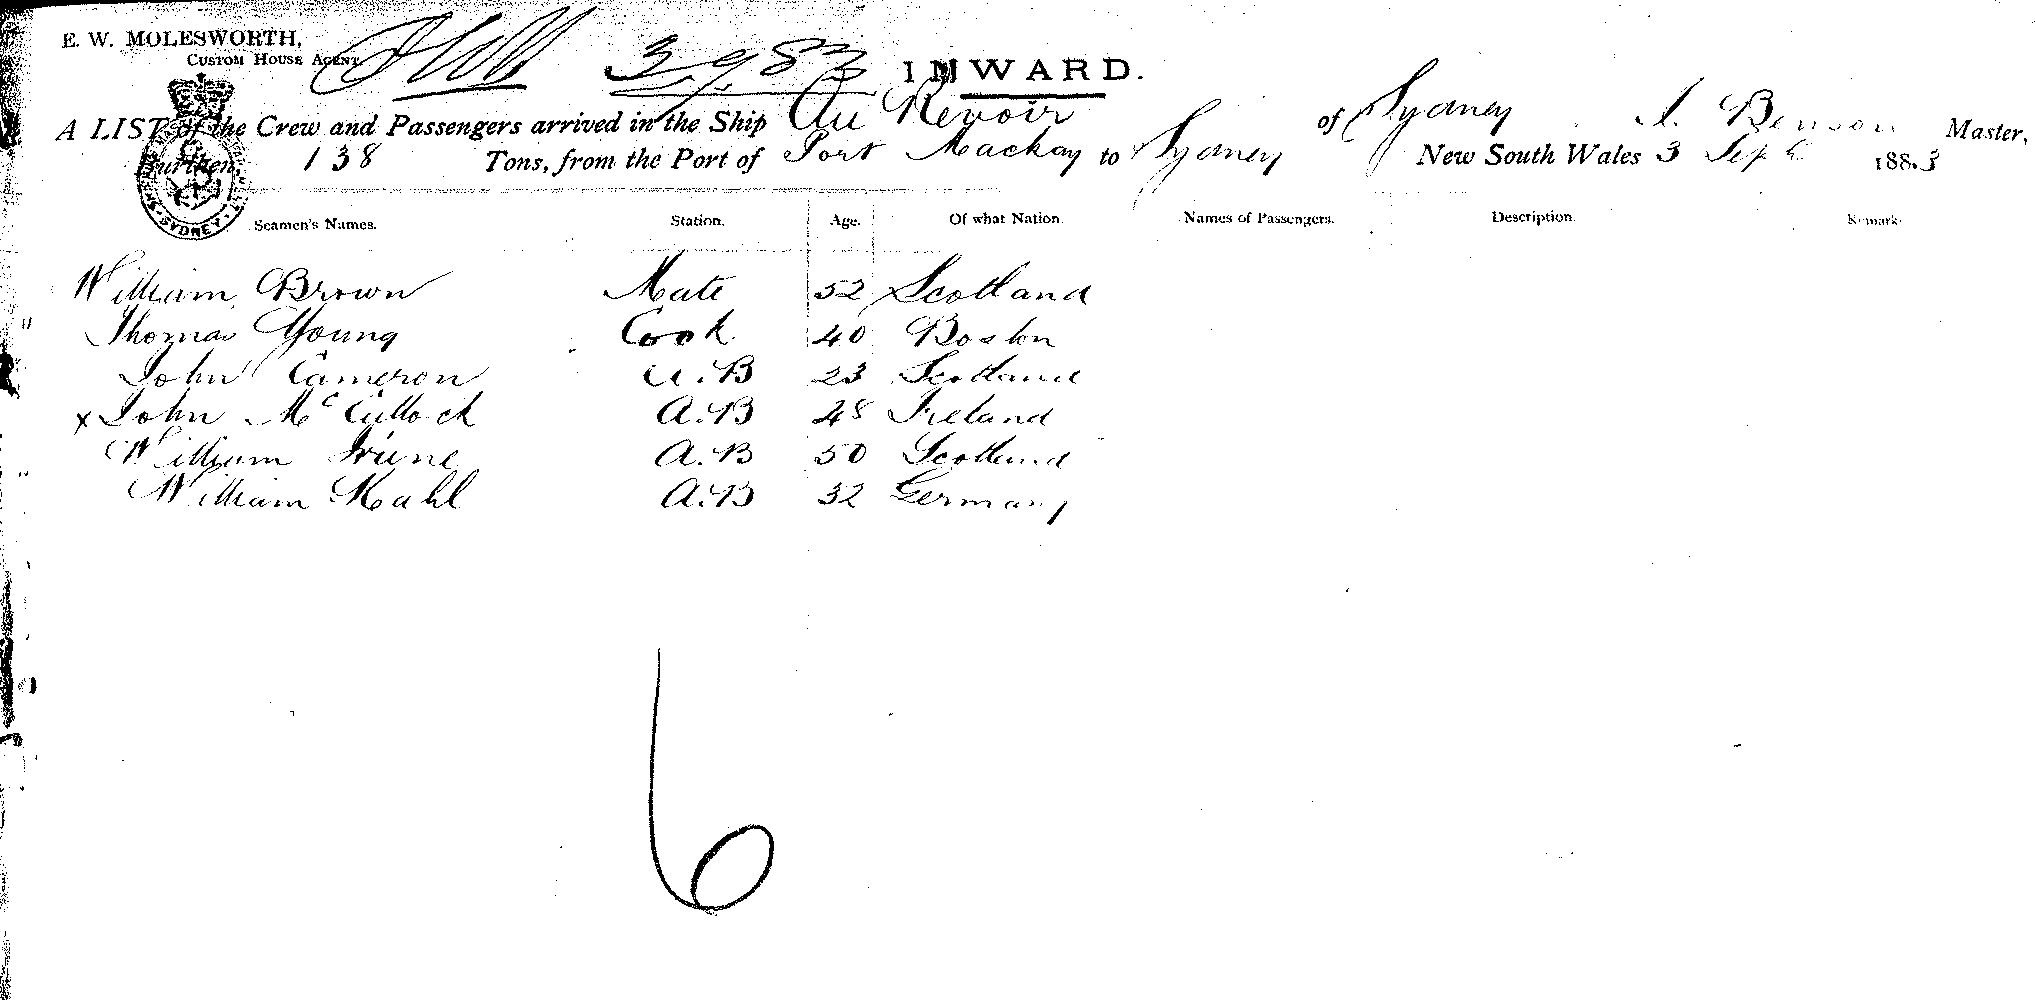 E. W. MOLESWORTH,
CUSTOM HOUSE AGENT
3.9.83
INWARD.
A LIST of the Crew and Passengers arrived in the Ship Au Revoir of Sydney J. Benson Master,
Burthen, 138 Tons, from the Port of Port Mackay to Sydney New South Wales 3 Sept 1883
SYDNEY
Seamen's Names. Station. Age. Of what Nation. Names of Passengers. Description. Remarks
William Brown Mate 52 Scotland
Thomas Young Cook 40 Boston
John Cameron A.B 23 Scotland
x John McCullock A.B 48 Ireland
William Irvine A.B 50 Scotland
William Kahl A.B 32 Germany
6